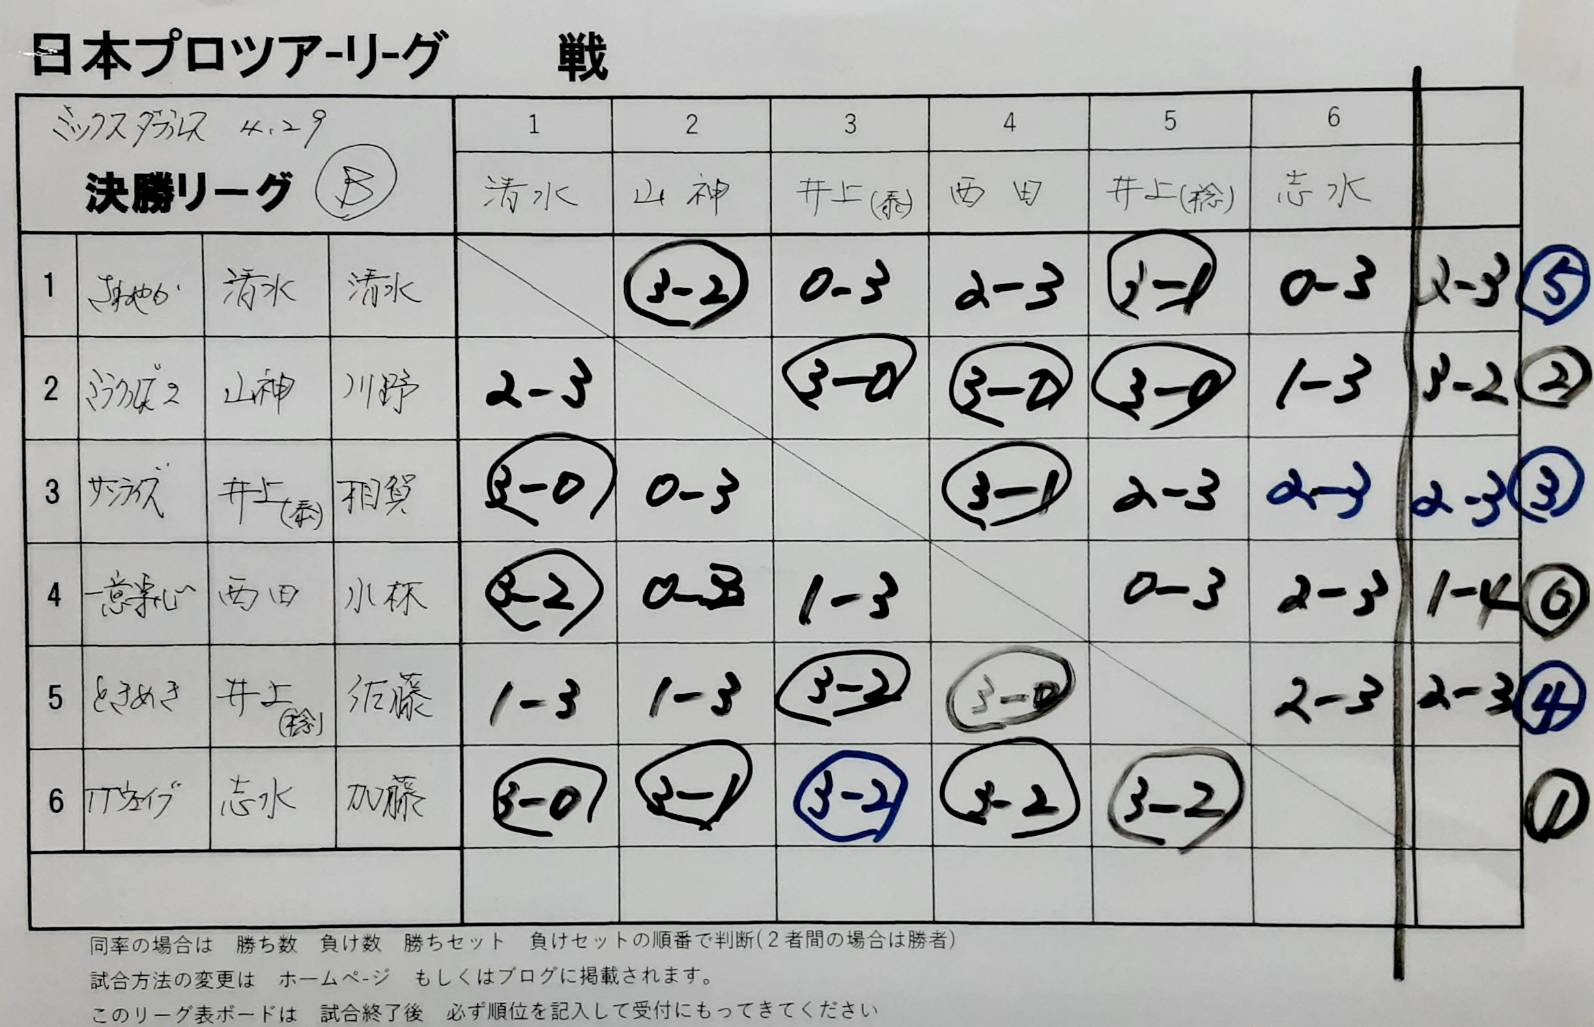 日本プロツアーリーグ 戦
ミックスダブルス 4.29 1 2 3 4 5 6
決勝リーグ B 清水 山神 井上(泰) 西田 井上(稔) 志水
1 さわやか 清水 清水 3-2 0-3 2-3 3-1 0-3 2-3 5
2 ミラクルズ2 山神 川野 2-3 3-0 3-0 3-0 1-3 3-2 2
3 サンライズ 井上(泰) 相賀 3-0 0-3 3-1 2-3 2-3 2-3 3
4 一意楽心 西田 小林 3-2 0-3 1-3 0-3 2-3 1-4 6
5 ときめき 井上(稔) 佐藤 1-3 1-3 3-2 3-0 2-3 2-3 4
6 TTウェイブ 志水 加藤 3-0 3-1 3-2 3-2 3-2 1
同率の場合は 勝ち数 負け数 勝ちセット 負けセットの順番で判断(2者間の場合は勝者)
試合方法の変更は ホームページ もしくはブログに掲載されます。
このリーグ表ボードは 試合終了後 必ず順位を記入して受付にもってきてください